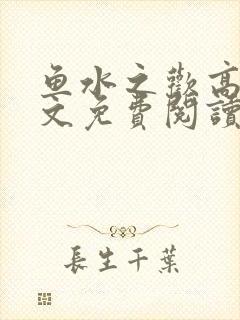 魚水之歡高
文免費閱讀
長生千葉